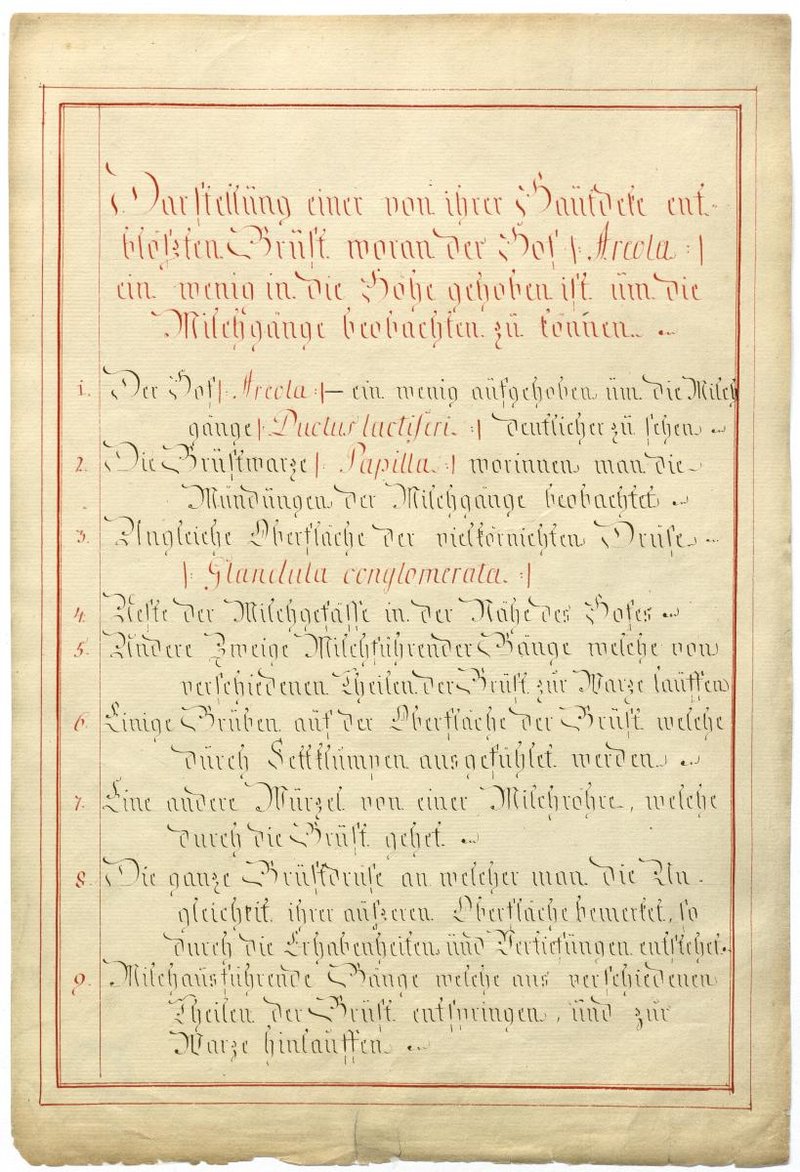 Darstellüng einer von ihrer Haütdeke ent-
blößten Brüst woran der Hof |: Areola :|
ein wenig in die Höhe gehoben ist üm die
Milchgänge beobachten zü können.
1. Der Hof |: Areola :| — ein wenig aüfgehoben üm die Milch
gänge |: Ductus lactiferi. :| deütlicher zü sehen
2. Die Brüstwarze |: Papilla :| worinnen man die
Mündüngen der Milchgänge beobachtet
3. Ungleiche Oberfläche der vielkörnichten Drüse
|: Glandula conglomerata. :|
4. Aeste der Milchgefässe in der Nähe des Hofes
5. Andere Zweige Milchführender Gänge welche von
verschiedenen Theilen der Brüst zür Warze lauffen
6. Einige Grüben aüf der Oberfläche der Brüst welche
dürch Fettklümpen ausgefühlet werden
7. Eine andere Würzel von einer Milchröhre, welche
dürch die Brüst gehet.
8. Die ganze Brüstdrüse an welcher man die Un-
gleichkeit ihrer aüßeren Oberfläche bemerket, so
dürch die Erhabenheiten ünd Vertiefüngen entstehet.
9. Milchaüsführende Gänge welche aus verschiedenen
Theilen der Brüst entspringen, ünd zür
Warze hinlaüffen